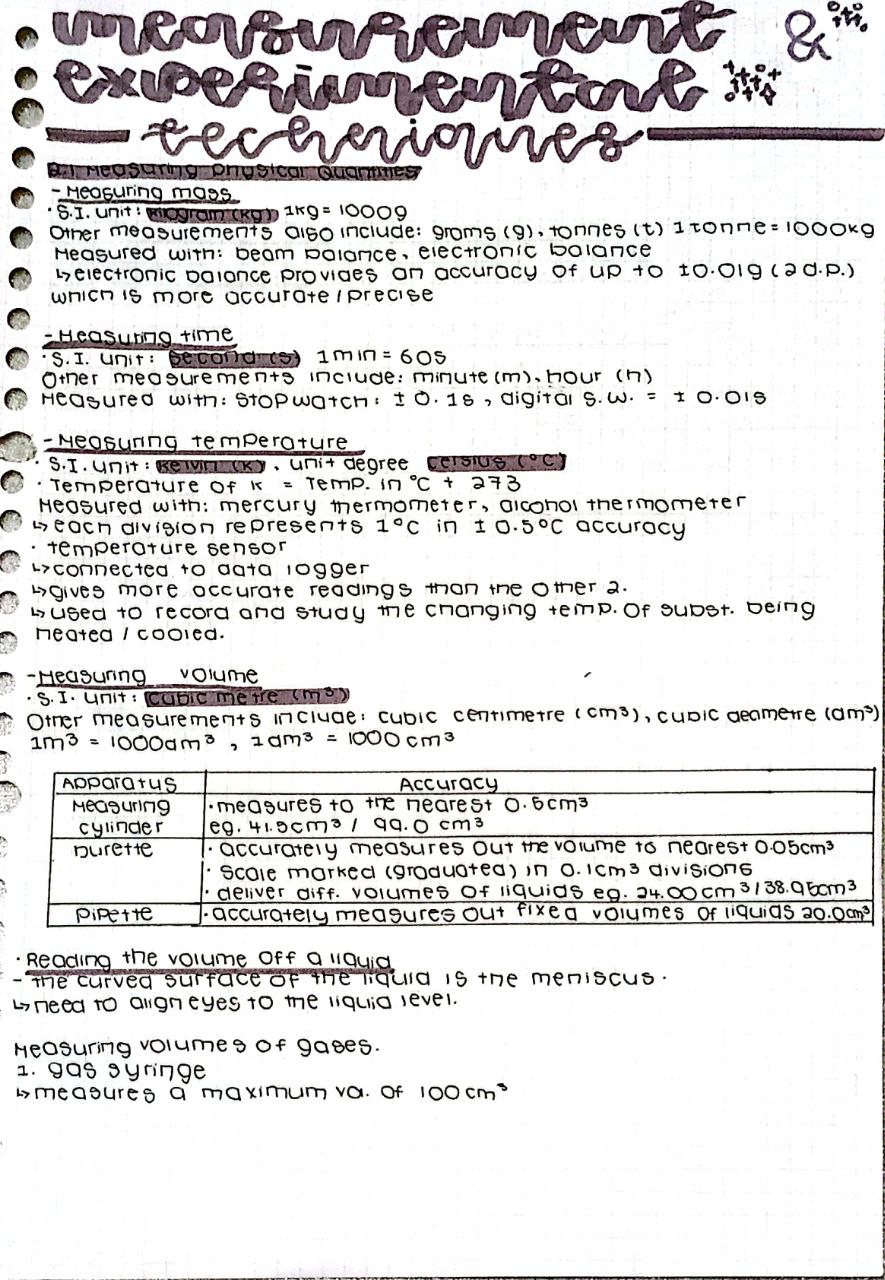 measurement &
experimental
techniques
2.1 Measuring Physical Quantities
- Measuring mass
· S.I. unit: kilogram (kg) 1kg = 1000g
Other measurements also include: grams (g), tonnes (t) 1 tonne = 1000kg
Measured with: beam balance, electronic balance
↳ electronic balance provides an accuracy of up to ±0.01g (2 d.p.)
which is more accurate / precise
- Measuring time
· S.I. unit: second (s) 1min = 60s
Other measurements include: minute (m), hour (h)
Measured with: stopwatch: ± 0.1s, digital s.w. = ± 0.01s
- Measuring temperature
· S.I. unit: Kelvin (K), unit degree Celsius (°C)
· Temperature of K = Temp. in °C + 273
Measured with: mercury thermometer, alcohol thermometer
↳ each division represents 1°C in ± 0.5°C accuracy
· temperature sensor
↳ connected to data logger
↳ gives more accurate readings than the other 2.
↳ used to record and study the changing temp. of subst. being
heated / cooled.
- Measuring volume
· S.I. unit: cubic metre (m³)
Other measurements include: cubic centimetre (cm³), cubic demetre (dm³)
1m³ = 1000dm³, 1dm³ = 1000 cm³
Apparatus Accuracy
Measuring · measures to the nearest 0.5cm³
cylinder eg. 41.5cm³ / 99.0 cm³
burette · accurately measures out the volume to nearest 0.05cm³
· scale marked (graduated) in 0.1cm³ divisions
· deliver diff. volumes of liquids eg. 24.00 cm³ / 38.95cm³
pipette · accurately measures out fixed volumes of liquids 20.0cm³
· Reading the volume off a liquid
- the curved surface of the liquid is the meniscus.
↳ need to align eyes to the liquid level.
Measuring volumes of gases.
1. gas syringe
↳ measures a maximum vol. of 100 cm³